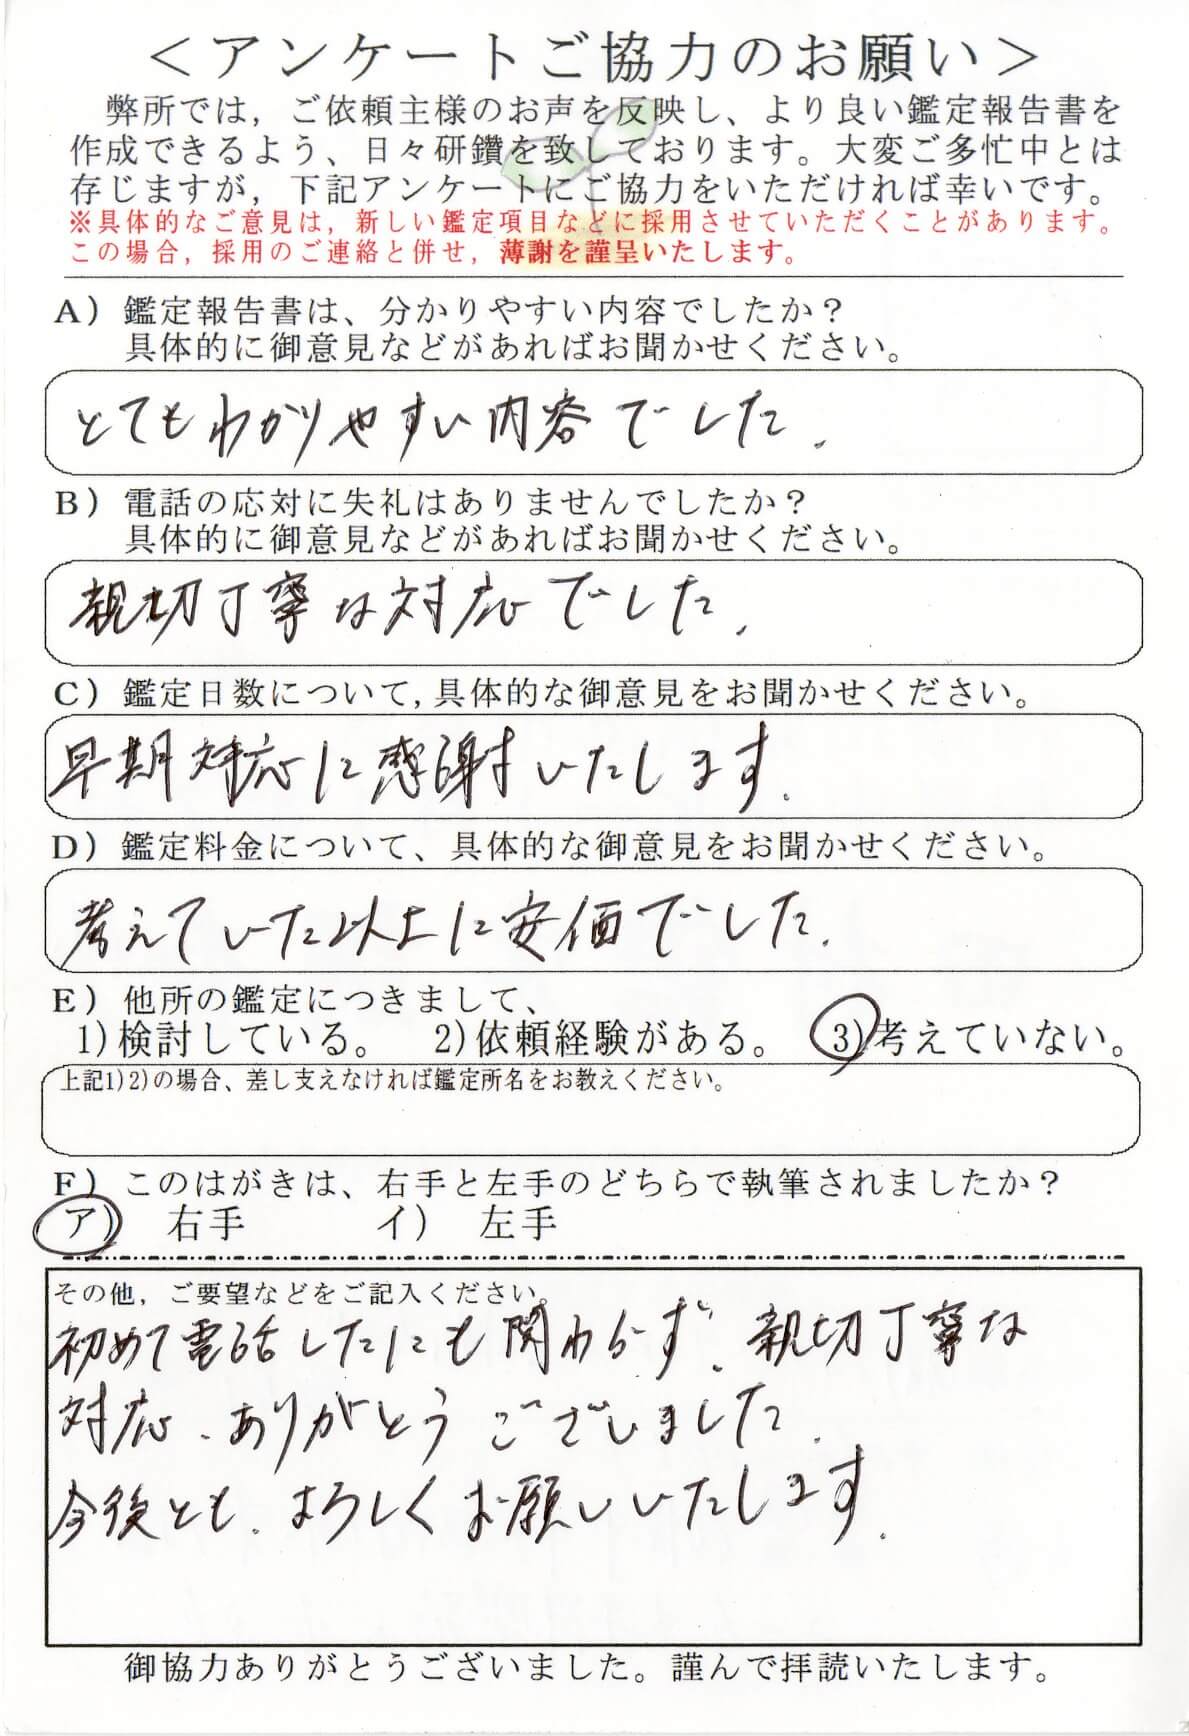 ＜アンケートご協力のお願い＞
弊所では，ご依頼主様のお声を反映し、より良い鑑定報告書を
作成できるよう、日々研鑽を致しております。大変ご多忙中とは
存じますが，下記アンケートにご協力をいただければ幸いです。
※具体的なご意見は，新しい鑑定項目などに採用させていただくことがあります。
この場合，採用のご連絡と併せ，薄謝を謹呈いたします。
A）鑑定報告書は、分かりやすい内容でしたか？
具体的に御意見などがあればお聞かせください。
とてもわかりやすい内容でした．
B）電話の応対に失礼はありませんでしたか？
具体的に御意見などがあればお聞かせください。
親切丁寧な対応でした．
C）鑑定日数について，具体的な御意見をお聞かせください。
早期対応に感謝いたします．
D）鑑定料金について、具体的な御意見をお聞かせください。
考えていた以上に安価でした．
E）他所の鑑定につきまして、
1)検討している。 2)依頼経験がある。 3)考えていない。
上記1)2)の場合、差し支えなければ鑑定所名をお教えください。
F）このはがきは、右手と左手のどちらで執筆されましたか？
ア） 右手 イ） 左手
その他，ご要望などをご記入ください。
初めて電話したにも関わらず．親切丁寧な
対応、ありがとうございました．
今後とも、よろしくお願いいたします．
御協力ありがとうございました。謹んで拝読いたします。